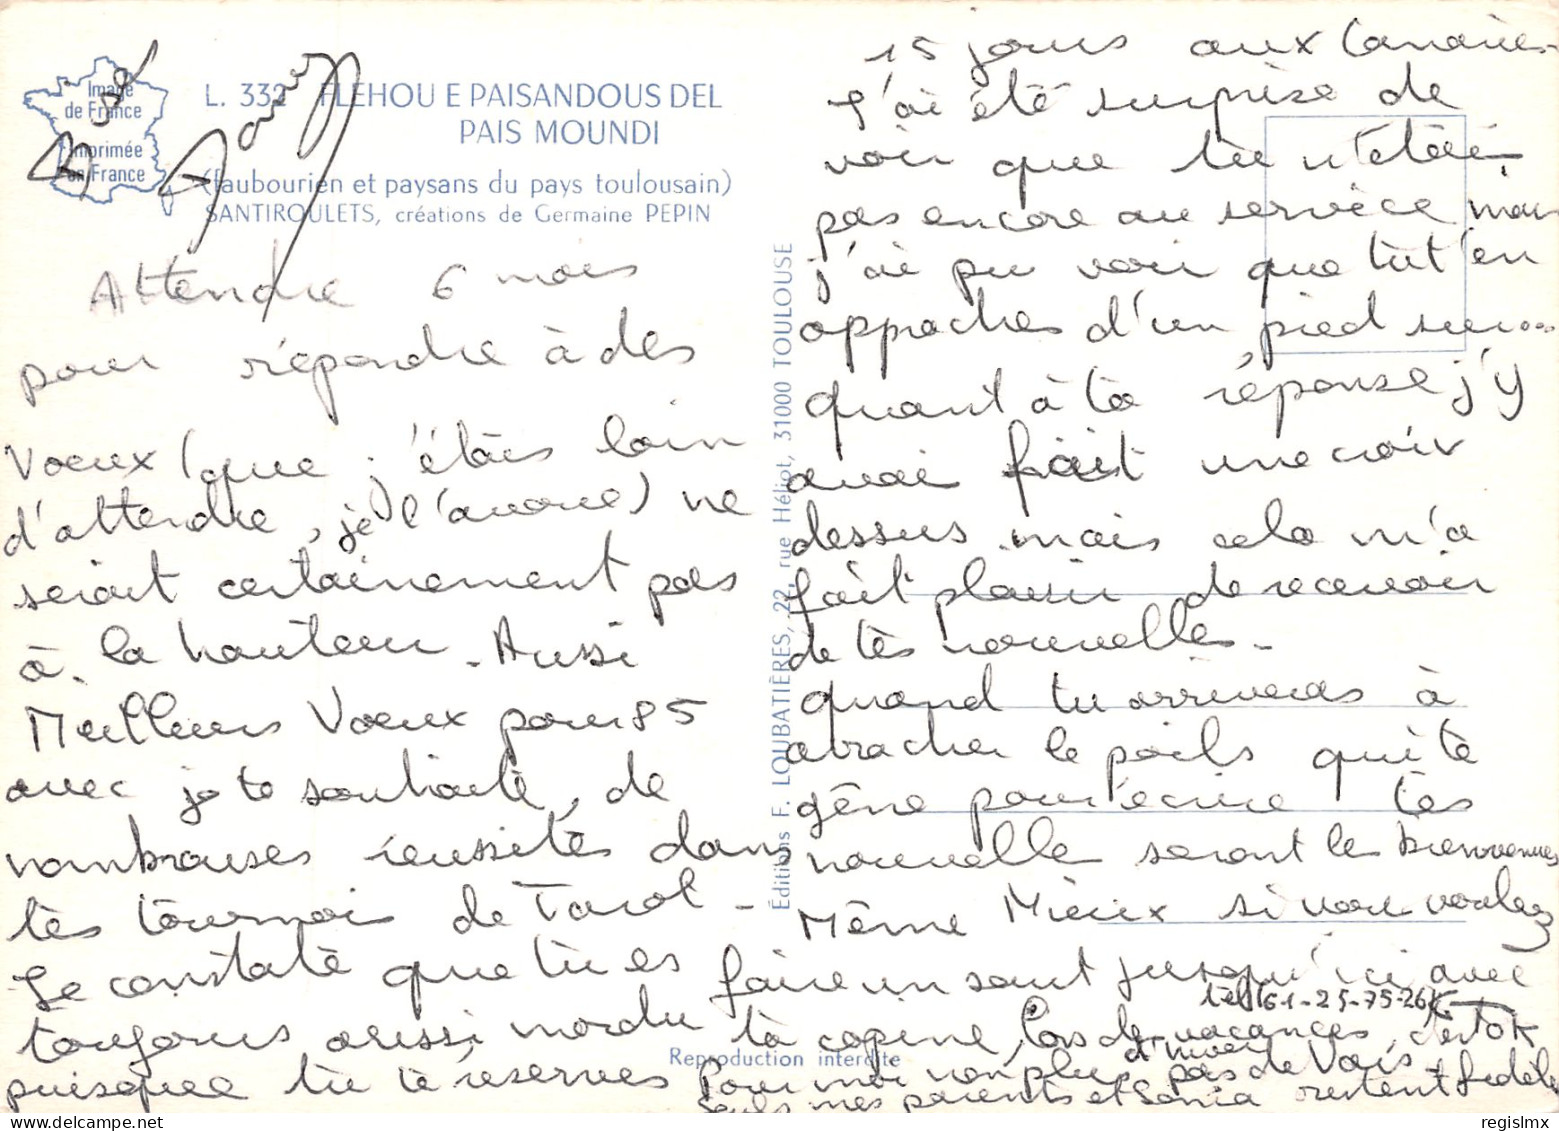 Image
de France
Imprimée
en France
L. 332 FLEHOU E PAISANDOUS DEL
PAIS MOUNDI
(faubourien et paysans du pays toulousain)
SANTIROULETS, créations de Germaine PEPIN
Attendre 6 mois
pour répondre à des
Voeux (que j'étais loin
d'attendre, je l'avoue) ne
serait certainement pas
à la hauteur. Aussi
Meilleurs Voeux pour 85
avec je te souhaite, de
nombreuses réussites dans
tes tournoi de Tarot -
Je constate que tu es
toujours aussi mordu
puisque tu te réserves
Éditions F. LOUBATIÈRES, 22, rue Héliot, 31000 TOULOUSE
Reproduction interdite
15 jours aux Canaries
J'ai été surprise de
voir que tu n'étais
pas encore au service mais
j'ai pu voir que tut'en
approches d'un pied sur...
quant à ta réponse j'y
avai fait une croix
dessus mais cela m'a
fait plaisir de recevoir
de tes nouvelles -
quand tu arriveras à
arracher le poils qui te
gêne pour écrire tes
nouvelle seront les bienvenues
Même Mieux si vous voulez
faire un saut jusqu'ici avec
tél 61-25-75-26
ta copine, lors de vacances, c'est OK
d'hiver
Pour moi non plus pas de Vais
seuls mes parents et Sonia restent fidèle
regislmx